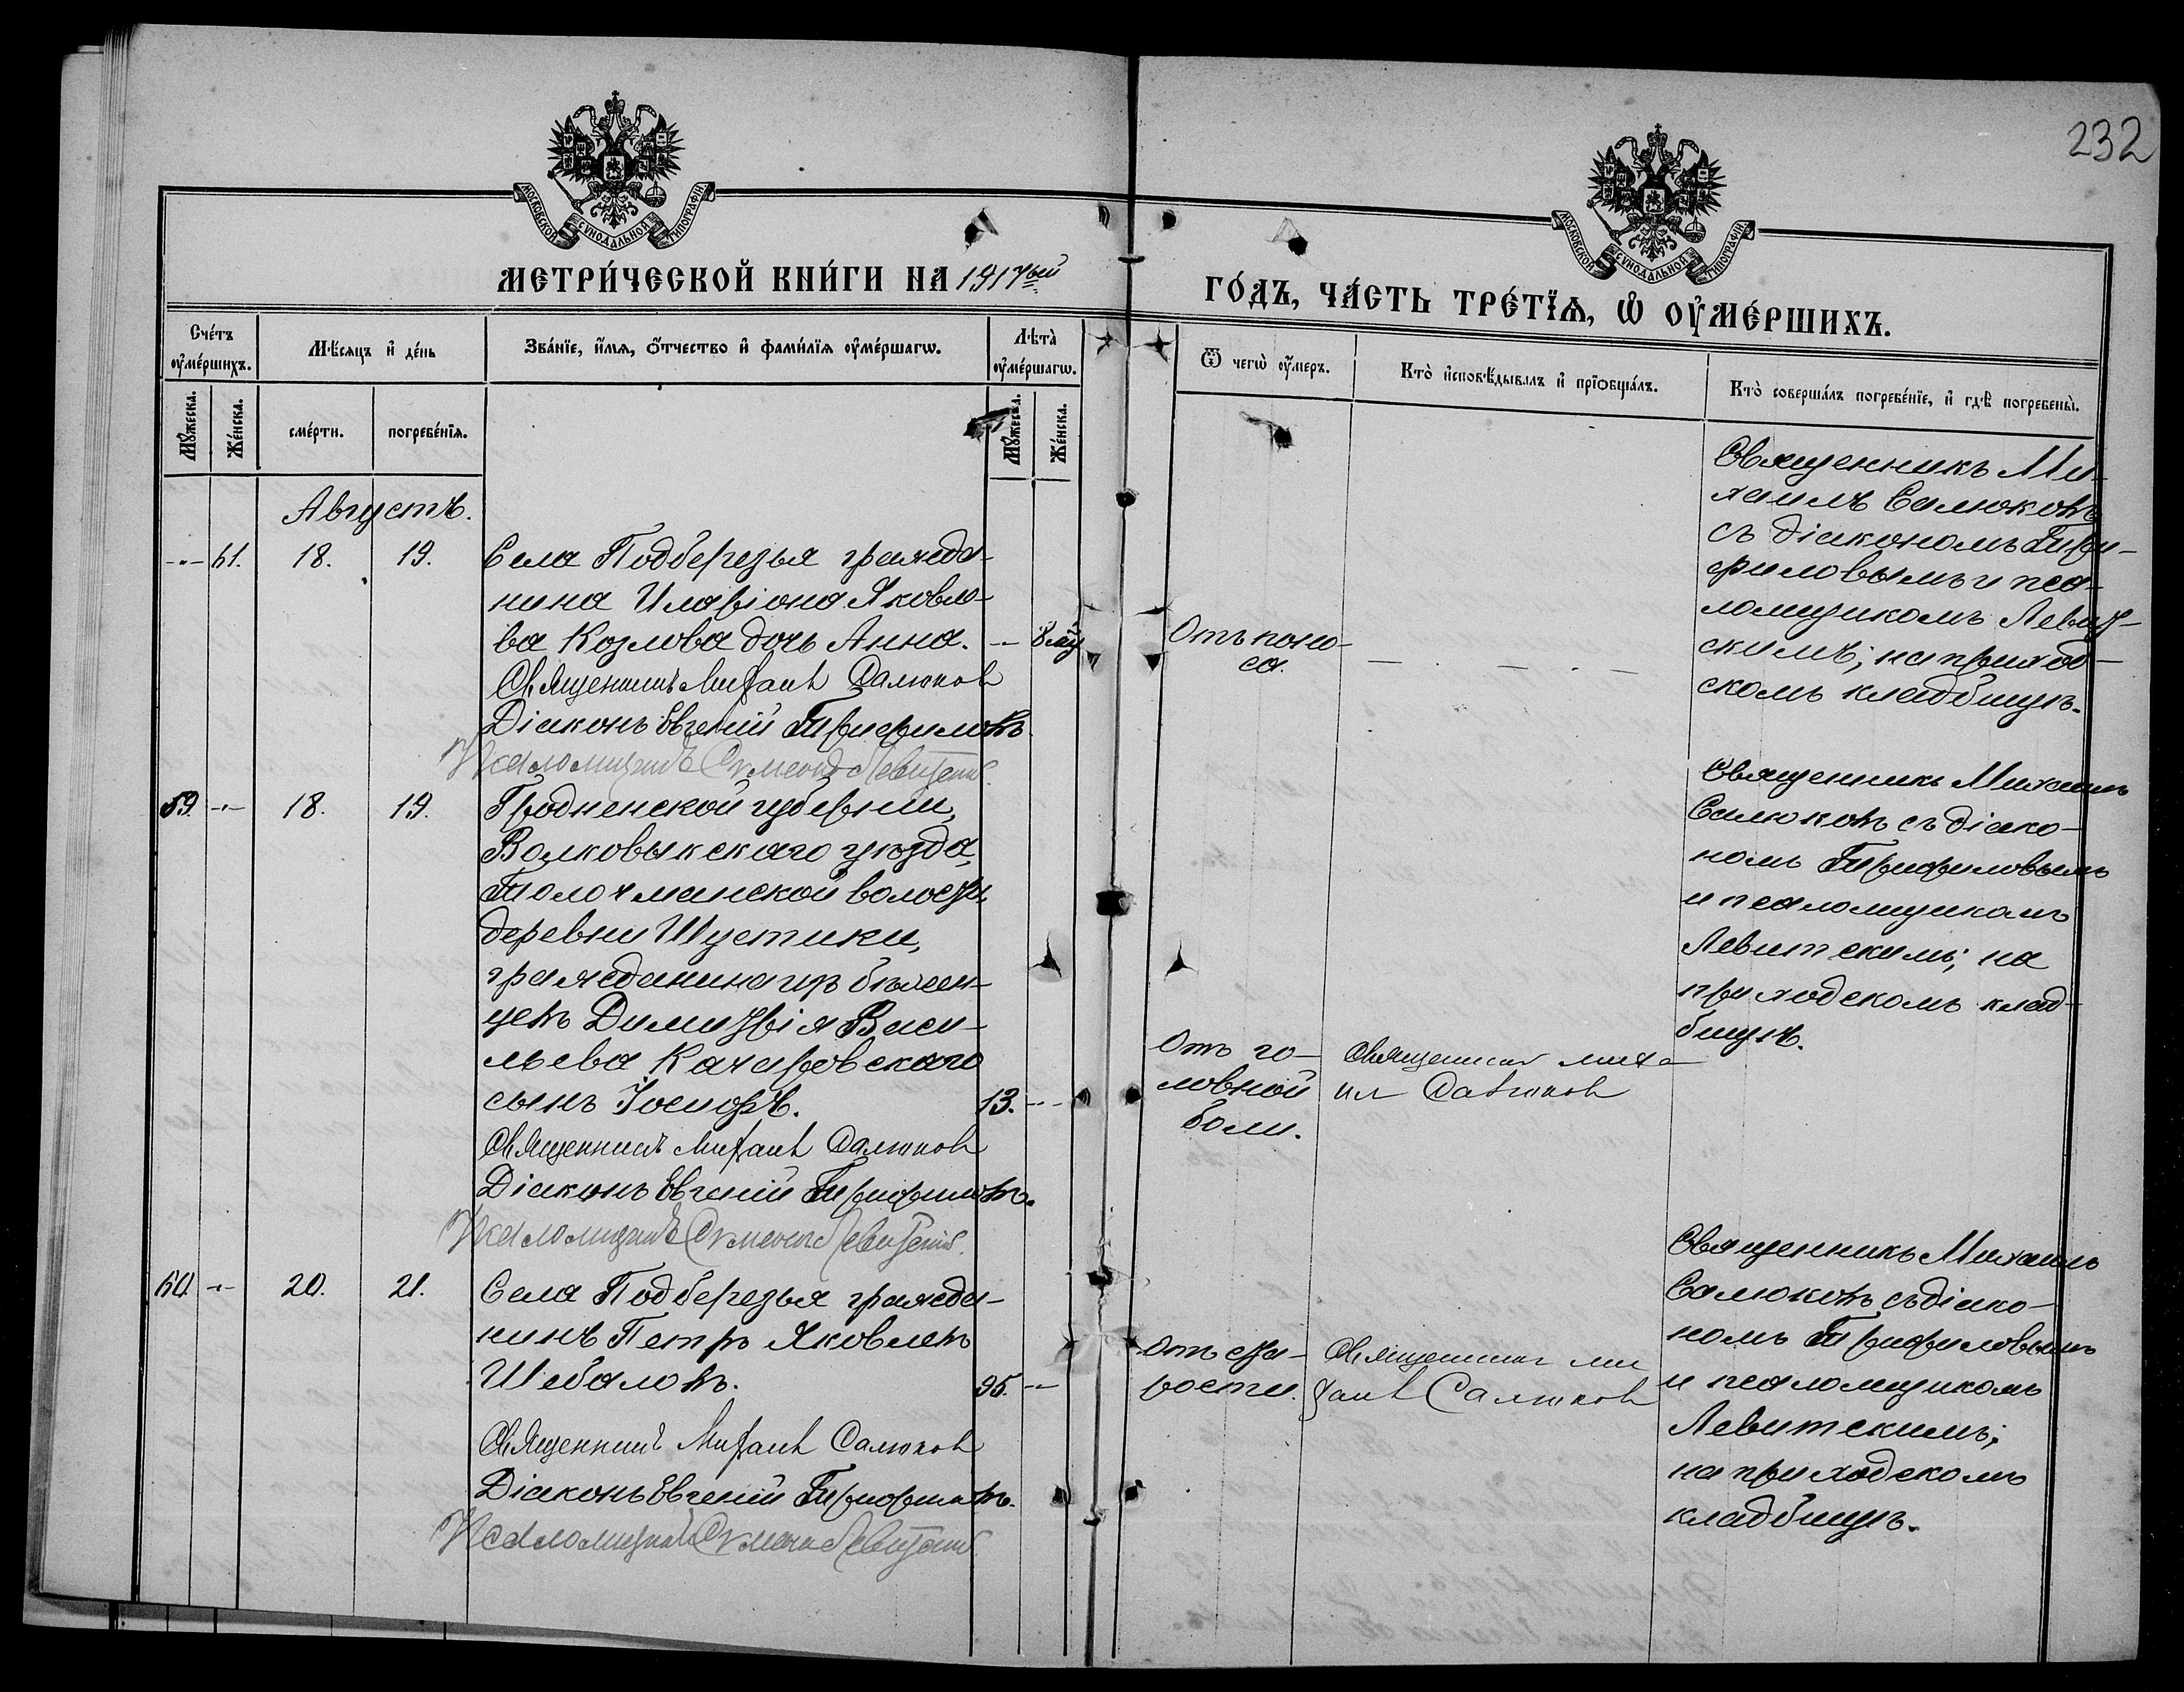 232
МОСКОВСКОЙ СѴНОДАЛЬНОЙ ТИПОГРАФІИ
МОСКОВСКОЙ СѴНОДАЛЬНОЙ ТИПОГРАФІИ
МЕТРИ́ЧЕСКОЙ КНИ́ГИ НА 1917ый
ГО́ДЪ, ЧА́СТЬ ТРЕ́ТІѦ, Ѡ҆ ОУ҆МЕ́РШИХЪ.
Сче́тъ оу҆ме́ршихъ.
Мꙋ́жеска.
Же́нска.
Мѣ́сяцъ и҆ де́нь
сме́рти.
погребе́нїѧ.
Зва́нїе, и҆́мѧ, ѻ҆́тчество и҆ фами́лїѧ оу҆ме́ршагѡ.
Лѣ́та оу҆ме́ршагѡ.
Мꙋ́жеска.
Же́нска.
Ѿ чегѡ̀ оу҆́меръ.
Кто̀ и҆сповѣ́дывалъ и҆ прїѡбща́лъ.
Кто̀ соверша́лъ погребе́нїе, и҆ гдѣ̀ погребены̀.
Августъ.
-"- 61. 18. 19.
Села Подберезья гражда-
нина Иларіона Яковле-
ва Козлова дочь Анна. - 8 мц
Священникъ Михаил Салюков
Діаконъ Евгеній Трифиловъ
Псаломщикъ Сѵмеонъ Левитскій
Отъ поно-
са.
Священникъ Ми-
хаилъ Салюковъ
съ діакономъ Три-
филовымъ и пса-
ломщикомъ Левит-
скимъ; на приход-
скомъ кладбищѣ.
59. -"- 18. 19.
Гродненской губерніи,
Волковыскскаго уѣзда,
Толочманской волости,
деревни Шустики,
гражданина изъ бѣжен-
цевъ Димитрія Васи-
льева Качаровскаго
сынъ Іосифъ. 13. -"-
Священникъ Михаил Салюков
Діаконъ Евгеній Трифиловъ.
Псаломщикъ Сѵмеонъ Левитскій.
Отъ го-
ловной
боли.
Священник Миха
ил Салюков
Священникъ Михаилъ
Салюковъ съ діако-
номъ Трифиловымъ
и псаломщикомъ
Левитскимъ; на
приходскомъ клад-
бищѣ.
60. -"- 20. 21.
Села Подберезья гражда-
нинъ Петръ Яковлевъ
Шебаловъ. 95. -"-
Священникъ Михаил Салюков
Діаконъ Евгеній Трифиловъ.
Псаломщикъ Сѵмеонъ Левитскій
Отъ ста-
рости.
Священник Ми
хаил Салюков
Священникъ Михаилъ
Салюковъ съ діако-
номъ Трифиловымъ
и псаломщикомъ
Левитскимъ;
на приходскомъ
кладбищѣ.